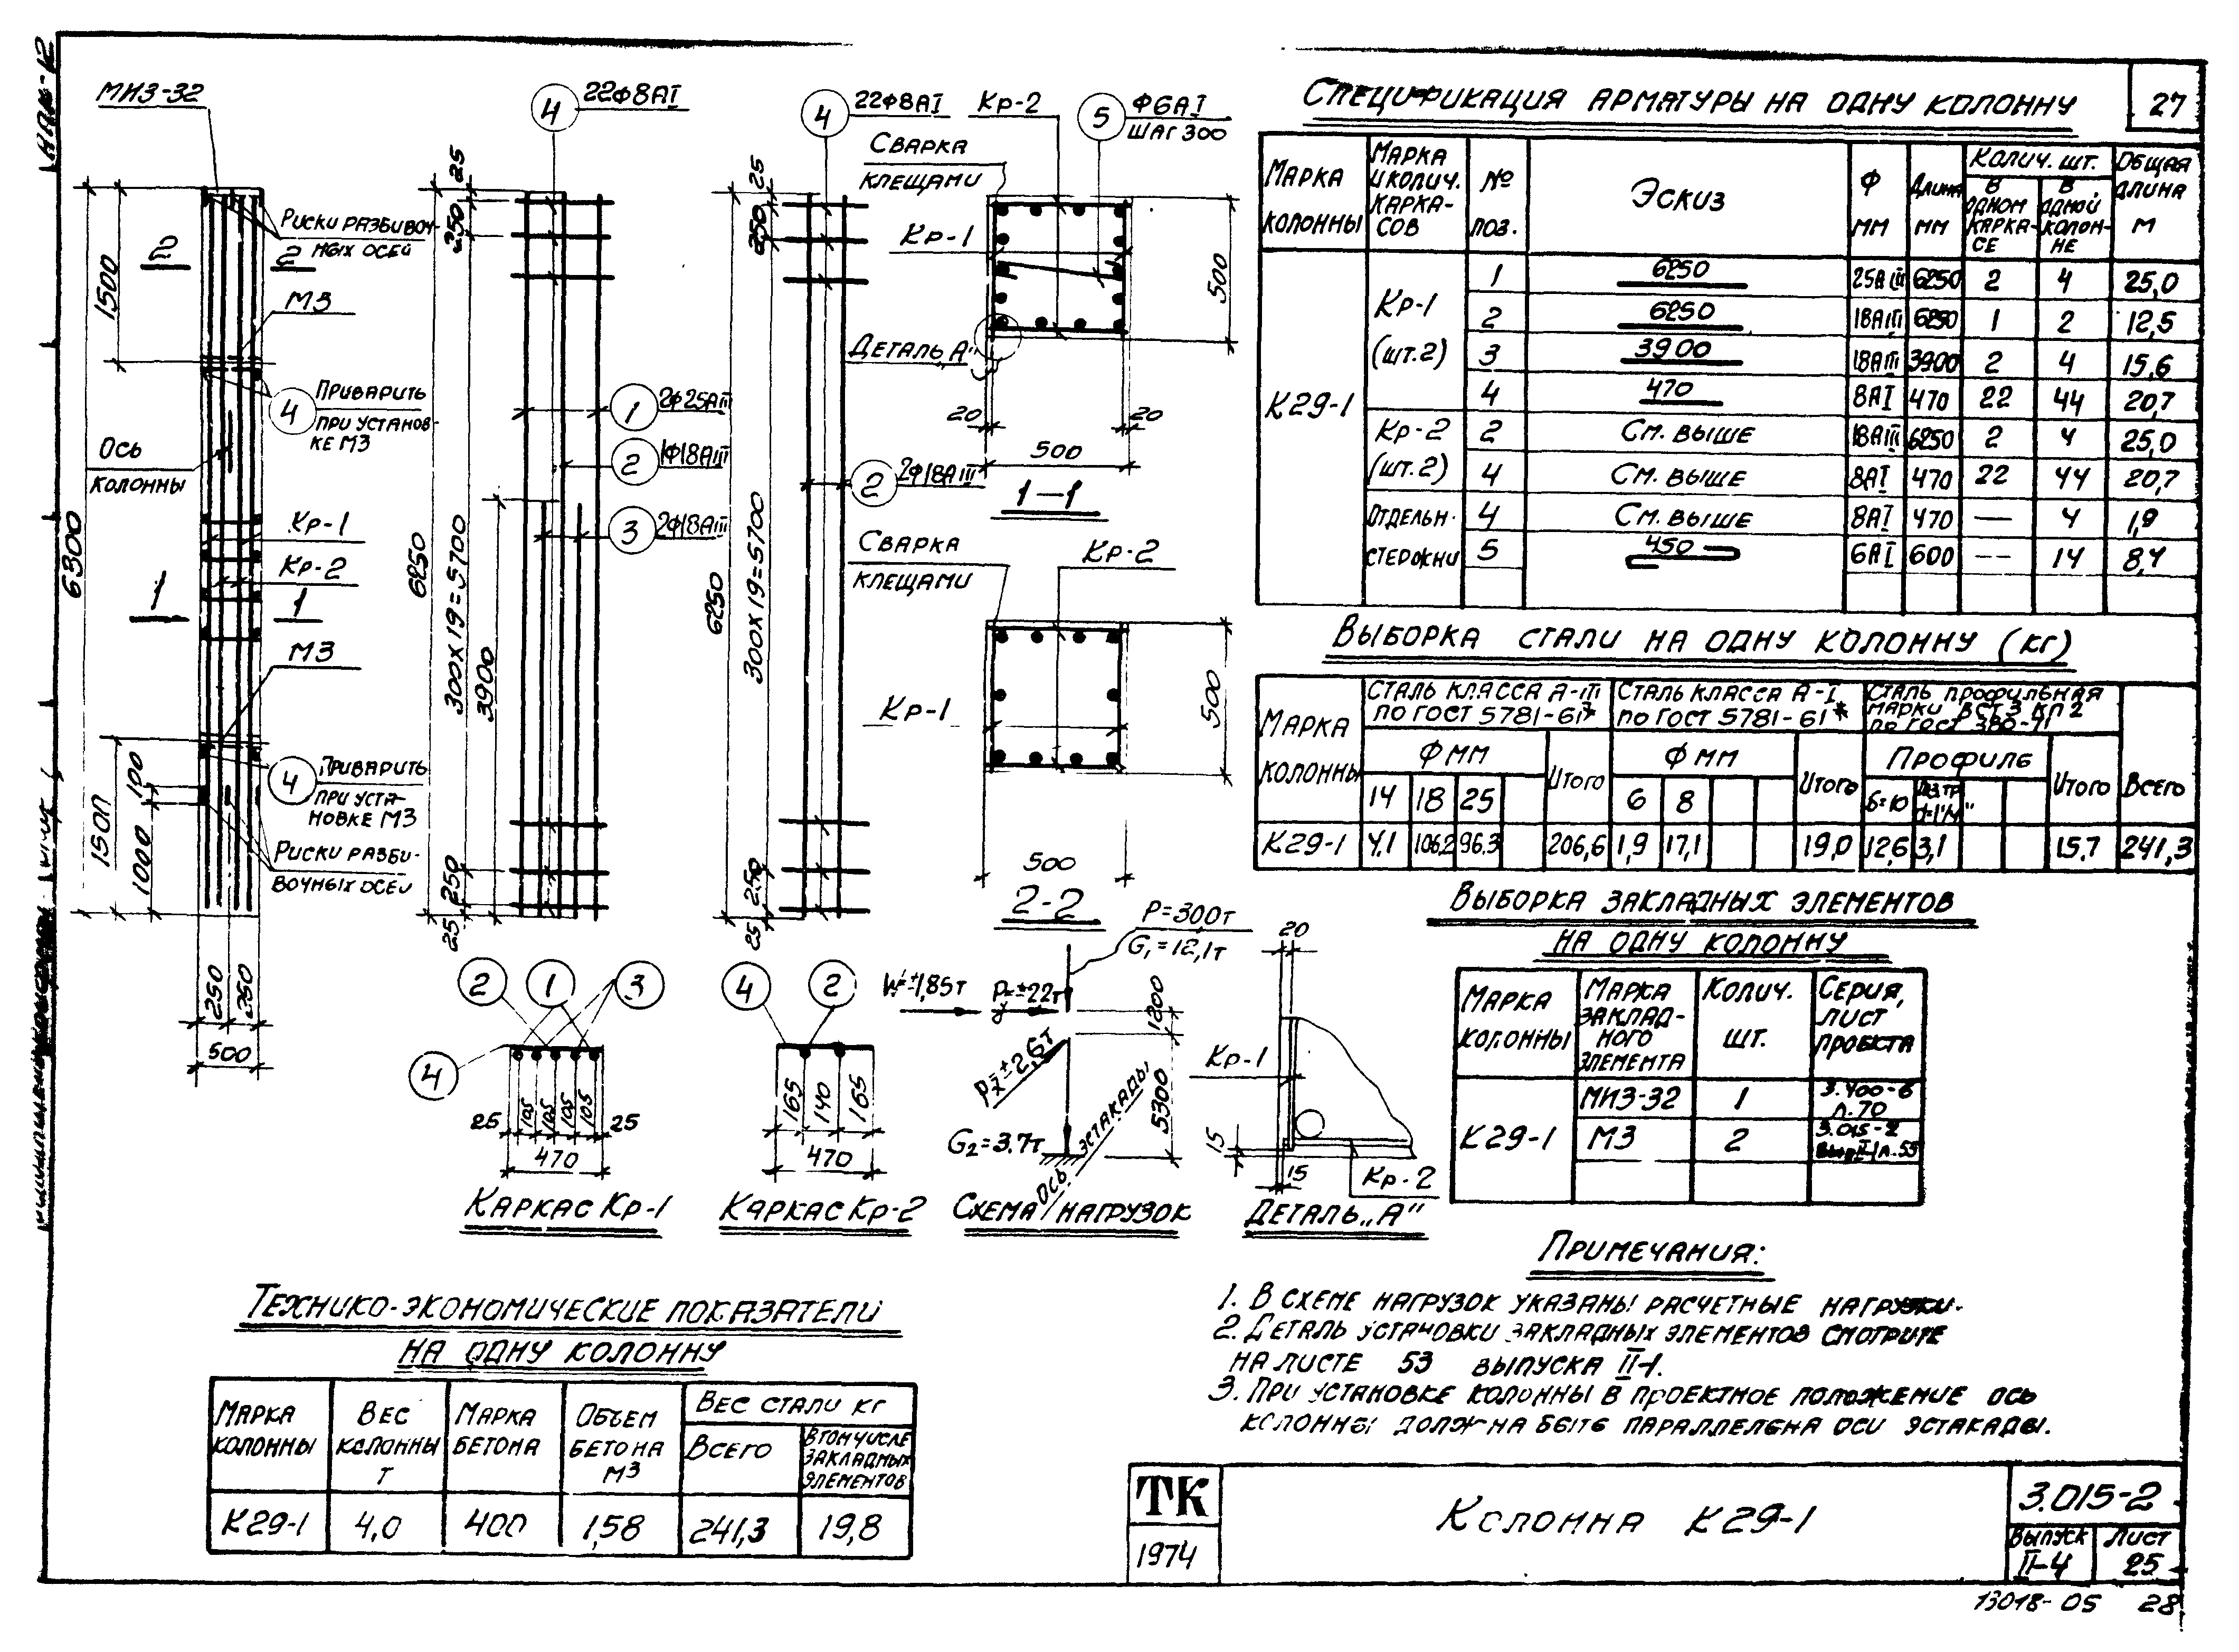 27
МИЗ-32
Риски разбивоч-
ных осей
2
2
М3
4
Приварить
при установ-
ке М3
Ось
колонны
Кр-1
Кр-2
1
1
М3
4
Приварить
при уста-
новке М3
Риски разби-
вочных осей
1500
6300
100
1500
1000
250
250
500
4
22Ф8АI
25
250
6250
300х19=5700
3900
1
2Ф25АIII
2
1Ф18АIII
3
2Ф18АIII
250
25
2
1
3
4
25
105
105
105
105
25
470
Каркас Кр-1
4
22Ф8АI
25
250
6250
300х19=5700
2
2Ф18АIII
250
25
4
2
165
140
165
470
Каркас Кр-2
Кр-2
5
Ф6АI
шаг 300
Сварка
клещами
Кр-1
Деталь „А"
500
20
20
500
1-1
Сварка
клещами
Кр-2
Кр-1
500
500
2-2
P=300т
G₁=12,1т
W=±1,85т
Pу=±22т
Pх=±2,6т
G₂=3.7т
1200
5300
Ось эстакады
Схема нагрузок
20
Кр-1
15
15
Кр-2
Деталь „А"
Спецификация арматуры на одну колонну
Марка колонны
Марка и колич. каркасов
№ поз.
Эскиз
Ф мм
Длина мм
Колич. шт.
В одном каркасе
В одной колонне
Общая длина м
К29-1
Кр-1 (шт.2)
1 6250 25АIII 6250 2 4 25,0
2 6250 18АIII 6250 1 2 12,5
3 3900 18АIII 3900 2 4 15,6
4 470 8АI 470 22 44 20,7
Кр-2 (шт.2)
2 См. выше 18АIII 6250 2 4 25,0
4 См. выше 8АI 470 22 44 20,7
Отдельн. стержни
4 См. выше 8АI 470 — 4 1,9
5 450 6АI 600 -- 14 8,4
Выборка стали на одну колонну (кг)
Марка колонны
Сталь класса А-III
по ГОСТ 5781-61*
Сталь класса А-I
по ГОСТ 5781-61*
Сталь профильная
марки ВСТ 3 КП 2
по ГОСТ 380-71
Ф мм
Итого
Ф мм
Итого
Профиль
Итого
Всего
14 18 25
6 8
δ=10
К29-1 4.1 106,2 96.3 206,6 1,9 17,1 19,0 12,6 3,1 15,7 241,3
Выборка закладных элементов
на одну колонну
Марка колонны
Марка закладного элемента
Колич. шт.
Серия, лист проекта
К29-1
МИЗ-32 1 3.400-6 л.70
М3 2 3.015-2 вып II-1 л.55
Примечания:
1. В схеме нагрузок указаны расчетные нагрузки.
2. Деталь установки закладных элементов смотрите
на листе 53 выпуска II-1.
3. При установке колонны в проектное положение ось
колонны должна быть параллельна оси эстакады.
Технико-экономические показатели
на одну колонну
Марка колонны
Вес колонны т
Марка бетона
Объем бетона м3
Вес стали кг
Всего
В том числе закладных элементов
К29-1 4,0 400 1,58 241,3 19,8
ТК
1974
Колонна К29-1
3.015-2
Выпуск
II-4
Лист
25
13018-05 28